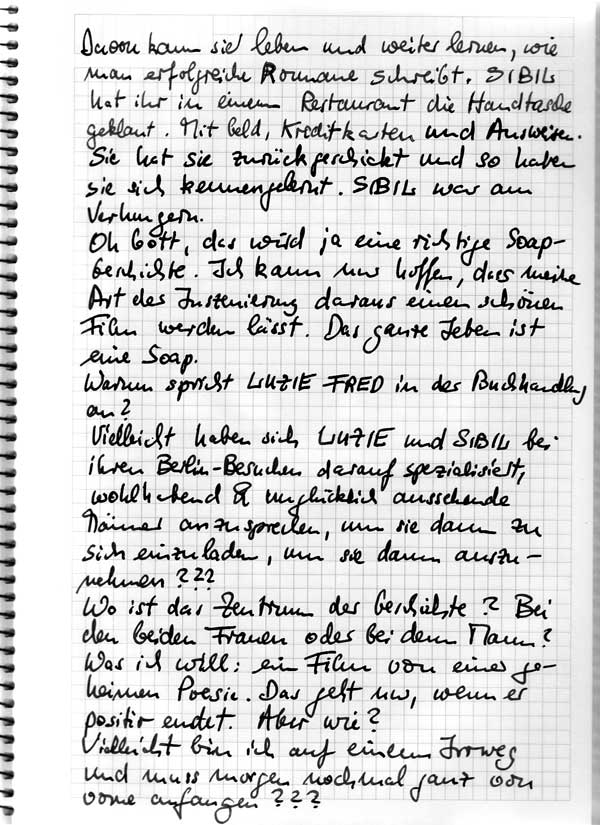 Davon kann sie leben und weiter lernen, wie
man erfolgreiche Romane schreibt. SIBIL
hat ihr in einem Restaurant die Handtasche
geklaut. Mit Geld, Kreditkarten und Ausweisen.
Sie hat sie zurückgeschickt und so haben
sie sich kennengelernt. SIBIL war am
Verhungern.
Oh Gott, das wird ja eine richtige Soap-
Geschichte. Ich kann nur hoffen, dass meine
Art der Inszenierung daraus einen schönen
Film werden lässt. Das ganze Leben ist
eine Soap.
Warum spricht LUZIE FRED in der Buchhandlung
an?
Vielleicht haben sich LUZIE und SIBIL bei
ihren Berlin-Besuchen darauf spezialisiert,
wohlhabend & unglücklich aussehende
Männer anzusprechen, um sie dann zu
sich einzuladen, um sie dann auszu-
nehmen ???
Wo ist das Zentrum der Geschichte? Bei
den beiden Frauen oder bei dem Mann?
Was ich will: ein Film von einer ge-
heimen Poesie. Das geht nur, wenn er
positiv endet. Aber wie?
Vielleicht bin ich auf einem Irrweg
und muss morgen nochmal ganz von
vorne anfangen ???